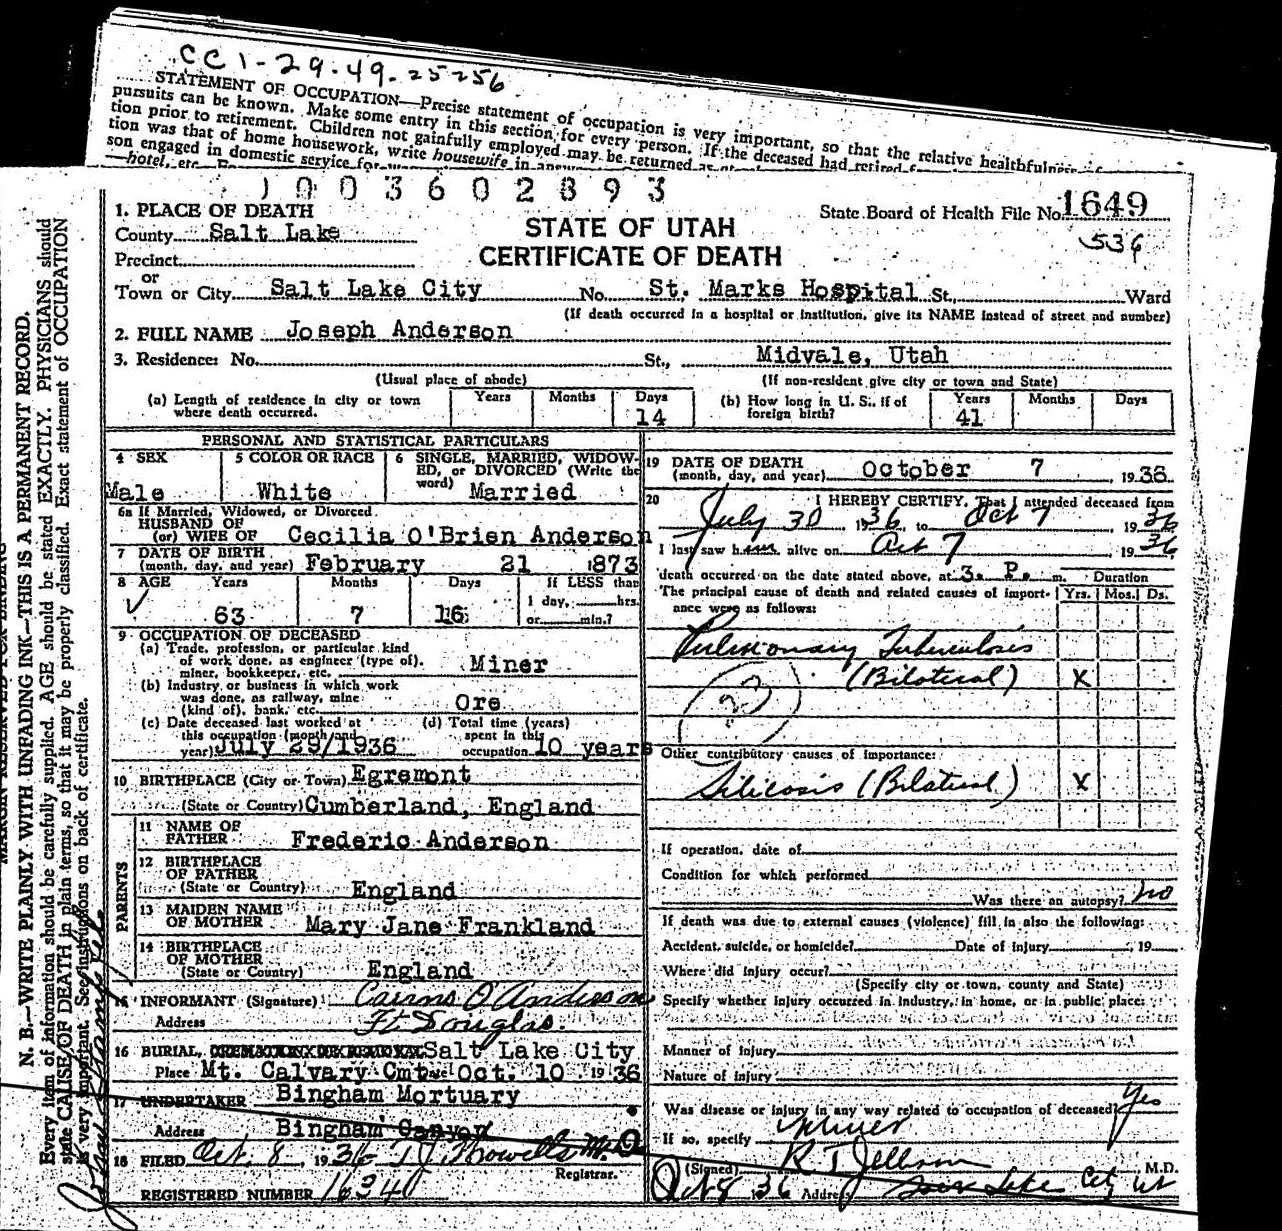 CC1-29-49-25256
STATEMENT OF OCCUPATION—Precise statement of occupation is very important, so that the relative healthfulness
pursuits can be known. Make some entry in this section for every person. If the deceased had retired
tion prior to retirement. Children not gainfully employed may be returned as
tion was that of home housework, write housewife in
son engaged in domestic service for
hotel, etc.
1003602893
1. PLACE OF DEATH
County Salt Lake
Precinct
or
Town or City Salt Lake City No. St. Marks Hospital St., Ward
(If death occurred in a hospital or institution, give its NAME instead of street and number)
STATE OF UTAH
CERTIFICATE OF DEATH
State Board of Health File No. 1649
536
2. FULL NAME Joseph Anderson
3. Residence: No. St., Midvale, Utah
(Usual place of abode) (If non-resident give city or town and State)
(a) Length of residence in city or town where death occurred. Years Months Days 14
(b) How long in U. S., if of foreign birth? Years 41 Months Days
PERSONAL AND STATISTICAL PARTICULARS
4 SEX Male
5 COLOR OR RACE White
6 SINGLE, MARRIED, WIDOWED, or DIVORCED (Write the word) Married
6a If Married, Widowed, or Divorced
HUSBAND OF
(or) WIFE OF Cecilia O'Brien Anderson
7 DATE OF BIRTH
(month, day, and year) February 21 1873
8 AGE Years 63 Months 7 Days 16 If LESS than 1 day, hrs. or min.?
9 OCCUPATION OF DECEASED
(a) Trade, profession, or particular kind
of work done, as engineer (type of),
miner, bookkeeper, etc. Miner
(b) Industry or business in which work
was done, as railway, mine
(kind of), bank, etc. Ore
(c) Date deceased last worked at this occupation (month and year) July 29/1936
(d) Total time (years) spent in this occupation 10 years
10 BIRTHPLACE (City or Town) Egremont
(State or Country) Cumberland, England
PARENTS
11 NAME OF FATHER Frederic Anderson
12 BIRTHPLACE OF FATHER
(State or Country) England
13 MAIDEN NAME OF MOTHER Mary Jane Frankland
14 BIRTHPLACE OF MOTHER
(State or Country) England
15 INFORMANT (Signature) Cairns O'Anderson
Address Ft Douglas.
16 BURIAL, Salt Lake City
Place Mt. Calvary Cmt Date Oct. 10 1936
17 UNDERTAKER Bingham Mortuary
Address Bingham Canyon
18 FILED Oct. 8, 1936 M.D.
Registrar.
REGISTERED NUMBER 1634
19 DATE OF DEATH
(month, day, and year) October 7 1936
20 I HEREBY CERTIFY, That I attended deceased from
July 30 1936, to Oct 7 1936
I last saw him alive on Oct 7 1936
death occurred on the date stated above, at 3. P. m.
The principal cause of death and related causes of importance were as follows:
Duration
Yrs. Mos. Ds.
Pulmonary Tuberculosis
(Bilateral) X
23
Other contributory causes of importance:
Silicosis (Bilateral) X
If operation, date of
Condition for which performed
Was there an autopsy? no
If death was due to external causes (violence) fill in also the following:
Accident, suicide, or homicide? Date of injury , 19
Where did injury occur?
(Specify city or town, county and State)
Specify whether injury occurred in industry, in home, or in public place:
Manner of injury
Nature of injury
Was disease or injury in any way related to occupation of deceased? Yes
If so, specify Miner
(Signed) M.D.
Oct 8 36 Address Salt Lake City Ut
MARGIN RESERVED FOR BINDING
N. B.—WRITE PLAINLY WITH UNFADING INK—THIS IS A PERMANENT RECORD.
Every item of information should be carefully supplied. AGE should be stated EXACTLY. PHYSICIANS should
state CAUSE OF DEATH in plain terms, so that it may be properly classified. Exact statement of OCCUPATION
is very important. See instructions on back of certificate.